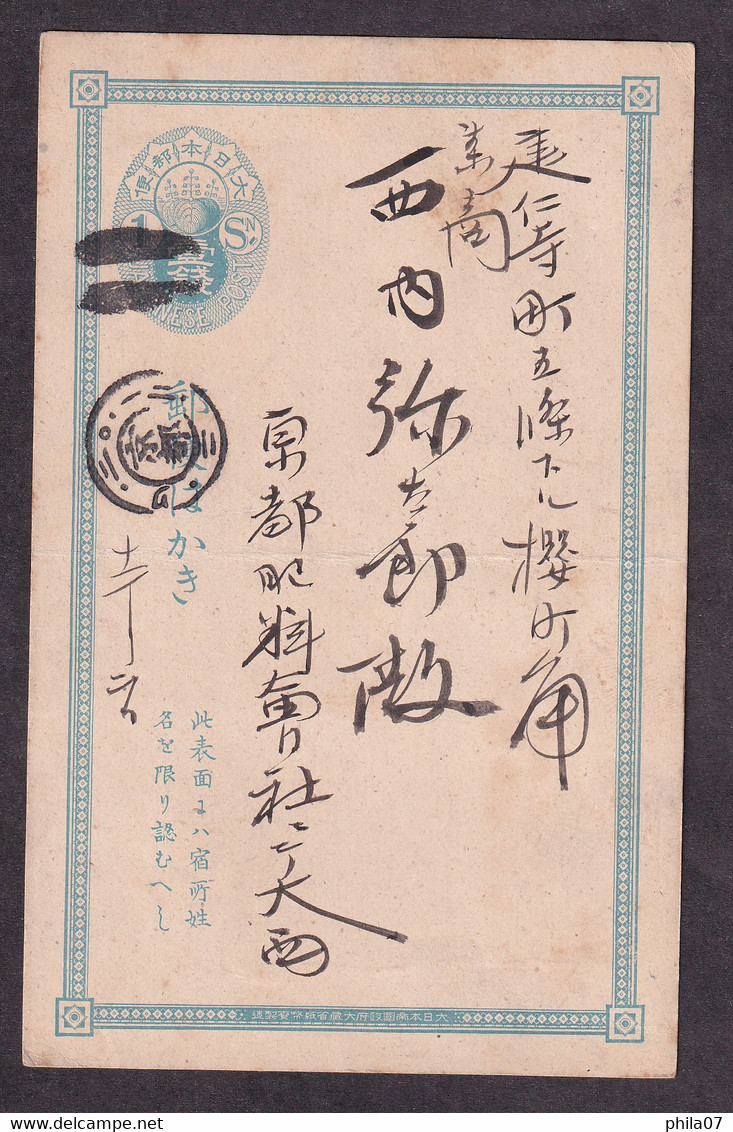 建仁寺町五條下ル櫻町角
西内弥太郎殿
京都肥料會社ニテ大西
大日本郵便
1 S
壹錢
郵便はかき
京都
此表面ヱハ宿所姓
名を限り認むへし
大日本帝國政府大藏省紙幣寮製造
phila07